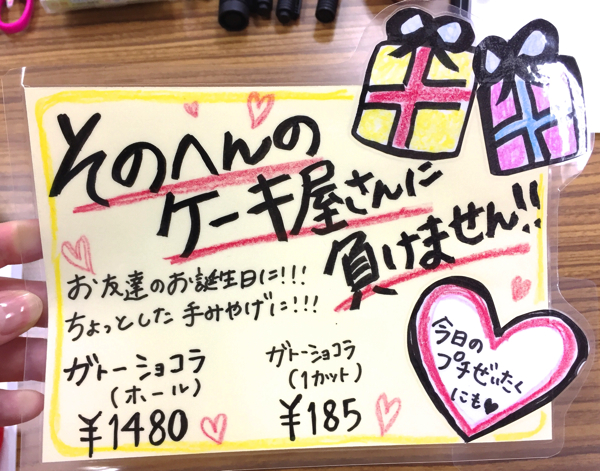 そのへんの
ケーキ屋さんに
負けません!!
お友達のお誕生日に!!!
ちょっとした手みやげに!!!
ガトーショコラ
(ホール)
¥1480
ガトーショコラ
(1カット)
¥185
今日の
プチぜいたく
にも♥